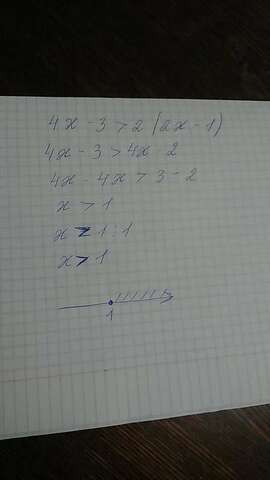 4x - 3 > 2 (2x - 1)
4x - 3 > 4x 2
4x - 4x > 3 - 2
x > 1
x ≥ 1 : 1
x > 1
1